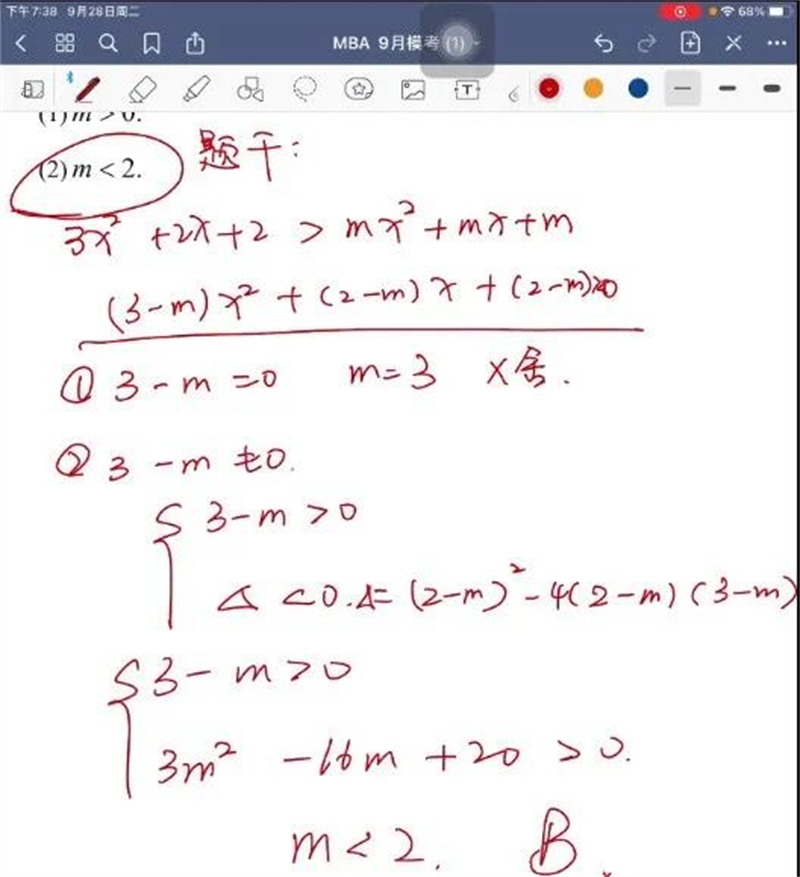 下午7:38 9月28日周二 68%
MBA 9月模考 (1)
T
(1) m > 0.
(2) m < 2. 题干:
3x² + 2x + 2 > mx² + mx + m
(3-m)x² + (2-m)x + (2-m)>0
① 3-m=0 m=3 ×舍.
② 3-m≠0.
{ 3-m>0
Δ<0. Δ=(2-m)²-4(2-m)(3-m)
{ 3-m>0
3m²-16m+20>0.
m<2. B.